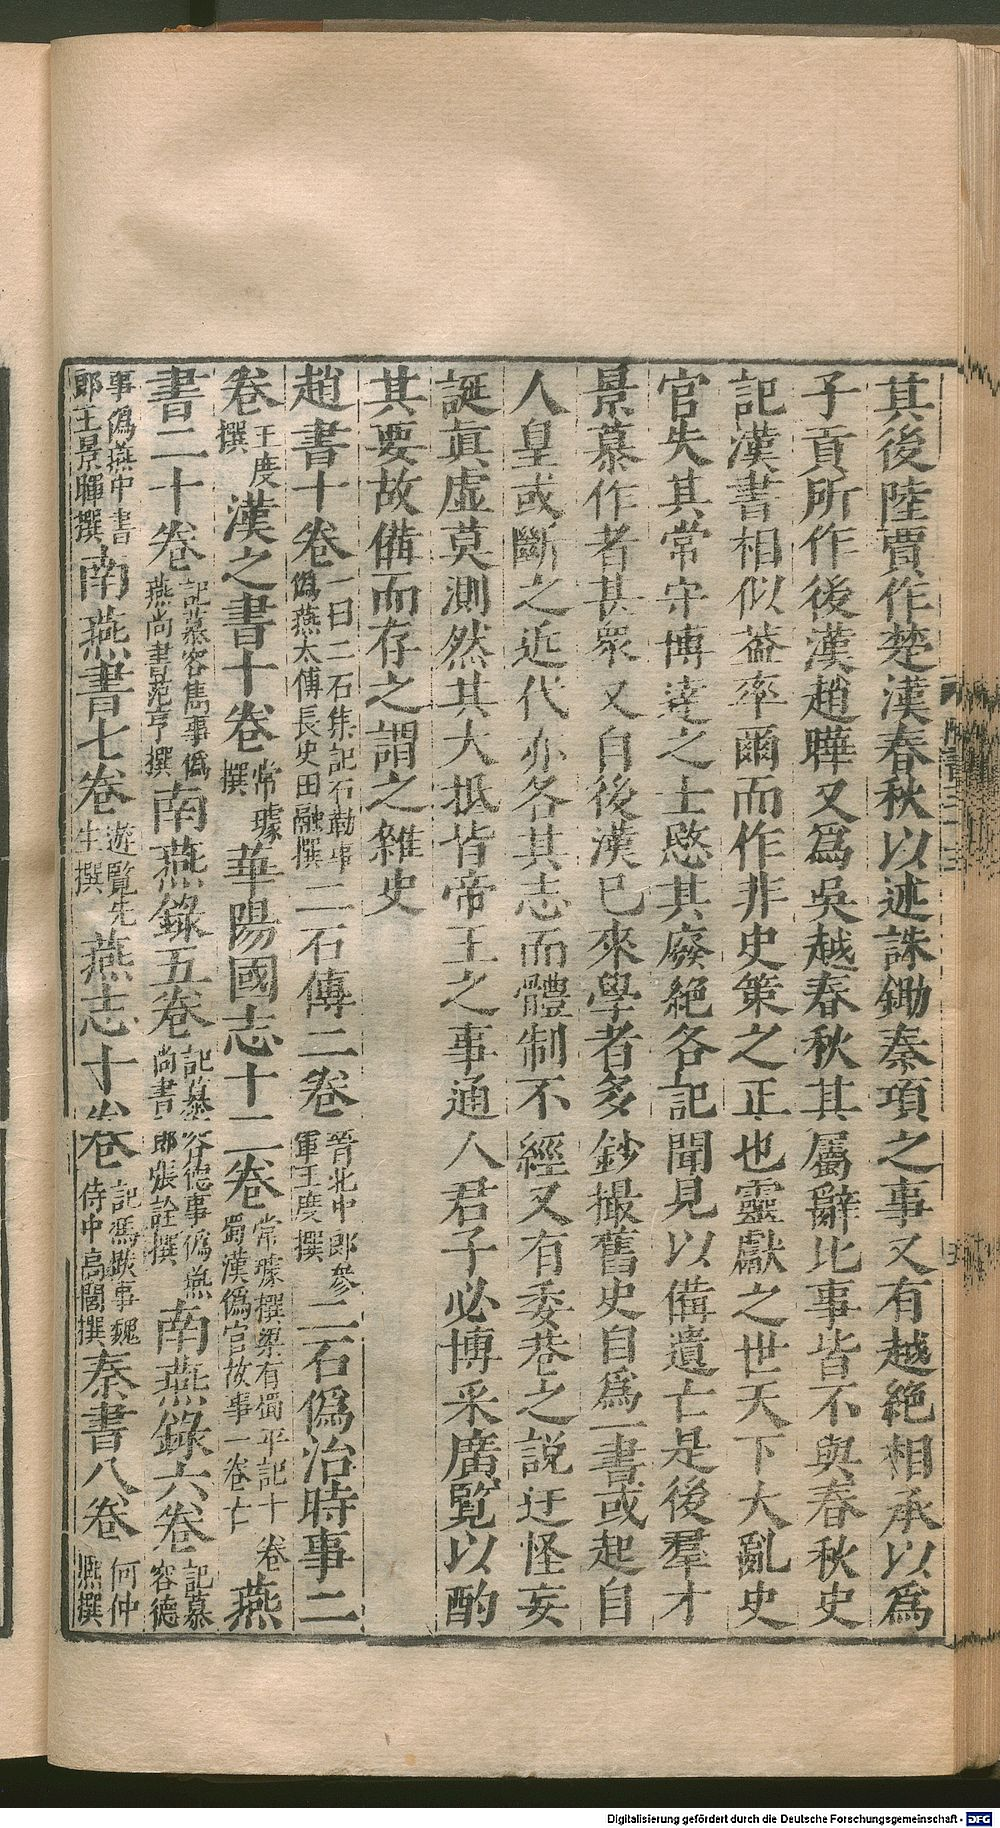 其後陸賈作楚漢春秋以述誅鋤秦項之事又有越絕相承以爲
子貢所作後漢趙曄又爲吳越春秋其屬辭比事皆不與春秋史
記漢書相似葢率爾而作非史策之正也靈獻之世天下大亂史
官失其常守博達之士愍其廢絕各記聞見以備遺亡是後羣才
景慕作者甚衆又自後漢已來學者多鈔撮舊史自爲一書或起自
人皇或斷之近代亦各其志而體制不經又有委巷之說迂怪妄
誕眞虛莫測然其大抵皆帝王之事通人君子必博采廣覽以酌
其要故備而存之謂之雜史
趙書十卷一曰二石集記石勒事僞燕太傅長史田融撰二石傳二卷晉北中郎參軍王度撰二石僞治時事二
卷王度撰漢之書十卷常璩撰華陽國志十二卷常璩撰梁有蜀平記十卷蜀漢僞官故事一卷亡燕
書二十卷記慕容雋事僞燕尚書范亨撰南燕錄五卷記慕容德事僞燕尚書郎張詮撰南燕錄六卷記慕容德
事僞燕中書郎王景暉撰南燕書七卷遊覽先生撰燕志十卷記馮跋事魏侍中高閭撰秦書八卷何仲熙撰
Digitalisierung gefördert durch die Deutsche Forschungsgemeinschaft - DFG